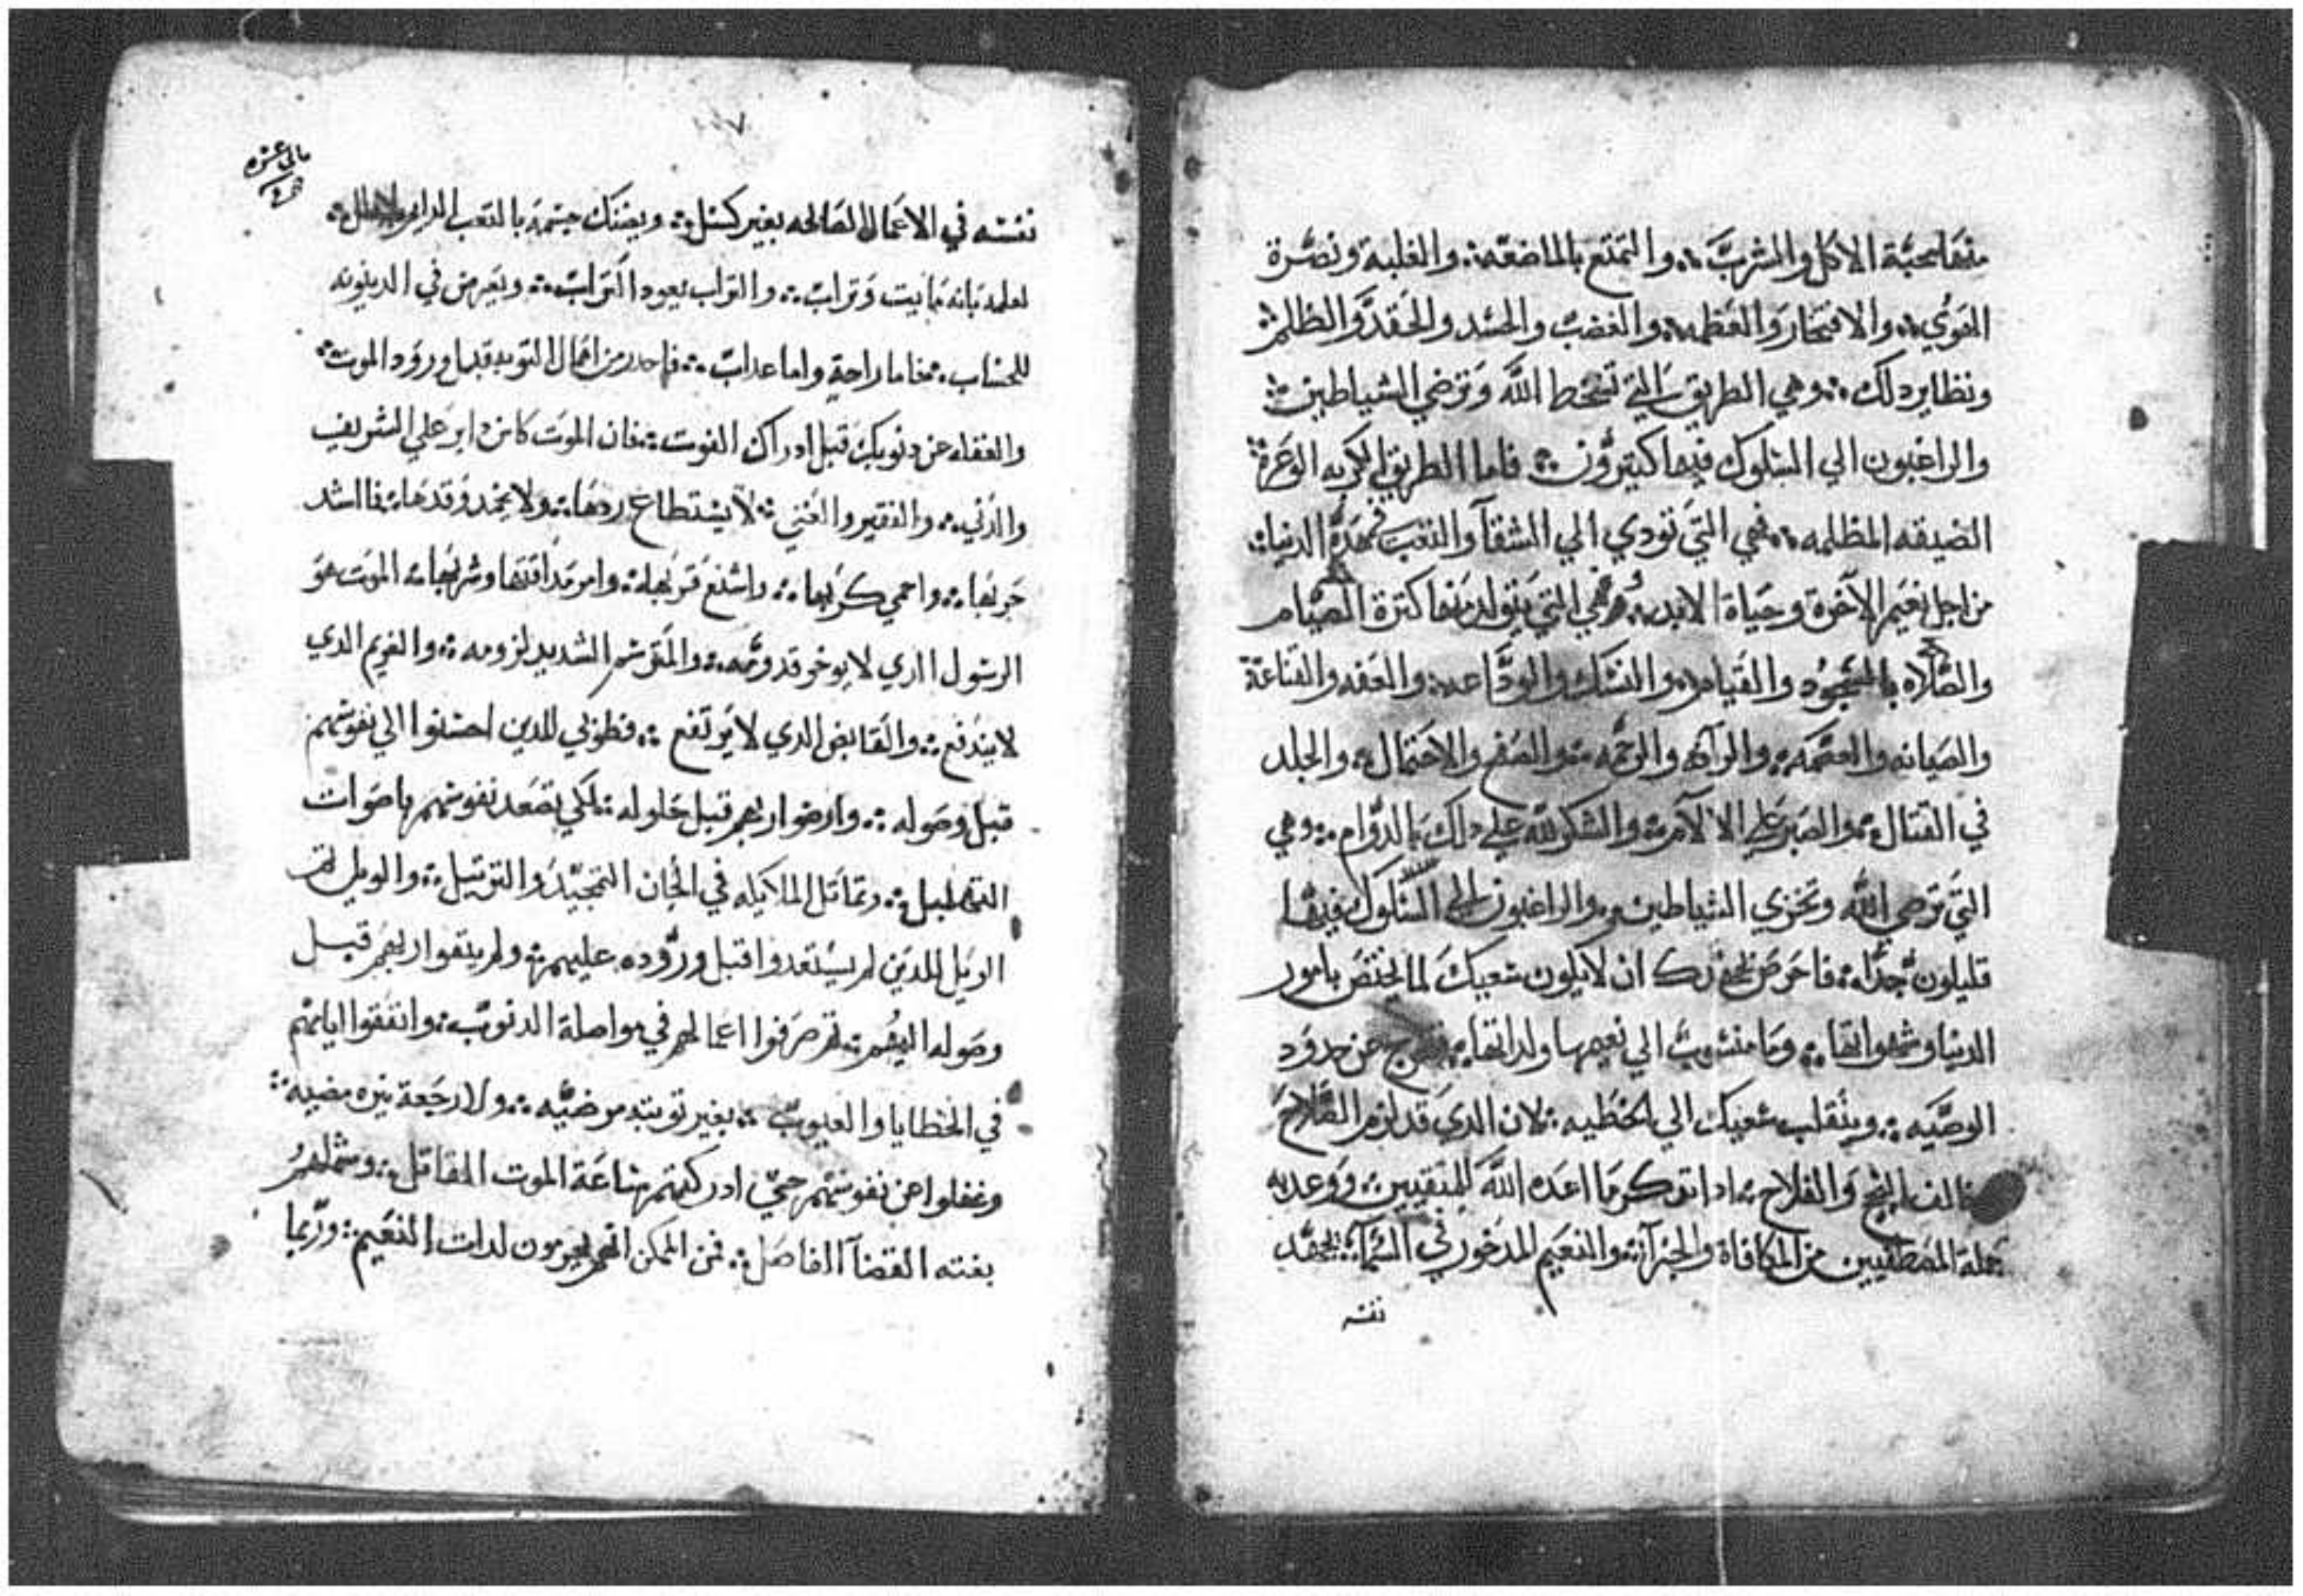 منها محبة الاكل والمشرب والتمتع بالمناضعه والغلبة ونصرة
القوي والافتخار والعظمه والغضب والحسد والحقد والظلم
ونظاير دلك وهي الطريق التي تسخط الله وترضي الشياطين
والراغبون الي السلوك فيها كتيرون فاما الطريق الكربه الوعرة
الضيقه المظلمه فهي التي تودي الي الشقآ والتعب في هده الدنيا
من اجل نعيم الآخرة وحياة الابد وهي التي يتولد منها كترة الصيام
والصلاه بالسجود والقيام والنسك والوداعه والعفه والقناعة
والصيانه والعصمه والرآفه والرحمه والصفح والاحتمال والجلد
في القتال والصبر علي الالآم والشكر لله علي دلك بالدوام وهي
التي ترضي الله وتخزي الشياطين والراغبون الي السلوك فيها
قليلون جدا فاحرص ان لا يكون سعيك لما يختص بامور
الدنيا وشهواتها وما منسوب الي نعيمها ولداتها فتخرج عن حدود
الوصيه وينقلب سعيك الي الخطيه لان الدي قد لزم الصلاح
النجح والفلاح ادا تدكر ما اعده الله للمتقيين ووعد به
جملة المصطفيين من المكافاة والجزآ والنعيم المدخور في السمآ يجهد
نفسه
تاني عشره
نفسه في الاعمال الصالحه بغير كسل ويضنك جسمه بالتعب الدايم
لعلمه بانه مايت وتراب والتراب يعود الي تراب ويعرض في الدينونه
للحساب فاما راحة واما عداب فاحدر من اهمال التوبه قبل ورود الموت
والغفله عن دنوبك قبل ادراك الفوت فان الموت كاس داير علي الشريف
والدني والفقير والغني لا يستطاع ردها ولا يخمد وقدها فما اشد
حربها واحمي كربها واشنع قربها وامر مداقتها وشربها الموت هو
الرسول الدي لا يوخر قدومه والمتقرسم الشديد لزومه والغريم الدي
لا يندفع والقابض الدي لا يرتفع فطوبي للدين احسنوا الي نفوسهم
قبل وصوله وارضوا ربهم قبل حلوله لكي تصعد نفوسهم باصوات
التهليل وتماتل الملايكه في الحان التمجيد والترتيل والويل تم
الويل للدين لم يستعدوا قبل وروده عليهم ولم يتقوا ربهم قبل
وصوله اليهم تم صرفوا اعمالهم في مواصلة الدنوب وانفقوا ايامهم
في الخطايا والعيوب بغير توبه مرضيه ولا رجعة مضيه
وغفلوا عن نفوسهم حتي ادركتهم ساعة الموت القاتل وشملهم
بغته القضآ الفاصل فمن الممكن انهم يحرمون لدات النعيم وربما